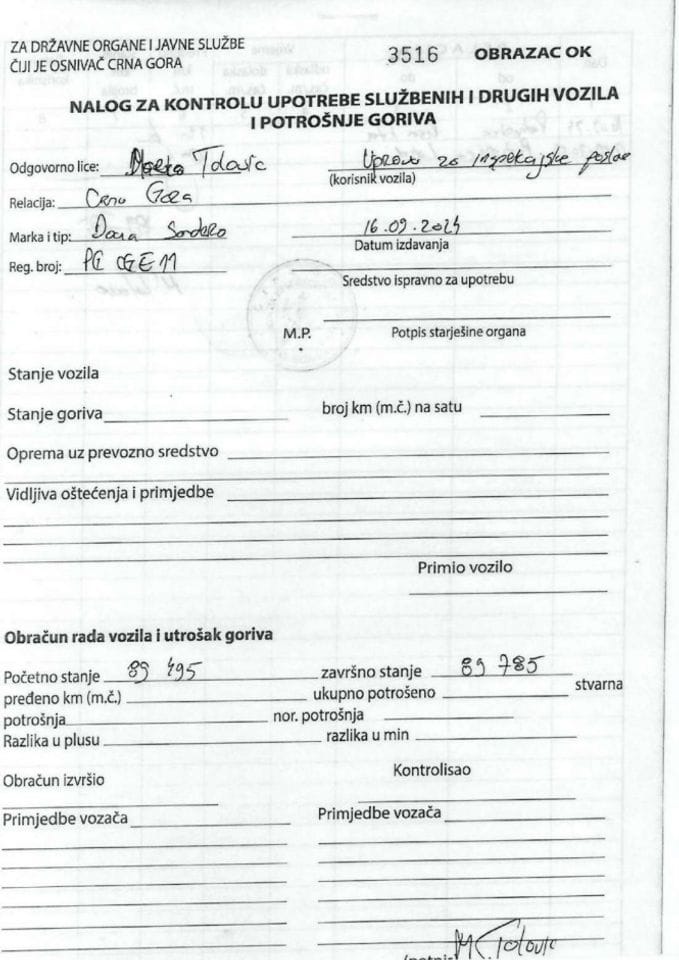 ZA DRŽAVNE ORGANE I JAVNE SLUŽBE
ČIJI JE OSNIVAČ CRNA GORA
3516 OBRAZAC OK
NALOG ZA KONTROLU UPOTREBE SLUŽBENIH I DRUGIH VOZILA
I POTROŠNJE GORIVA
Odgovorno lice: Uprava za inspekcijske poslove
(korisnik vozila)
Relacija: Crna Gora
Marka i tip: Dacia Sandero 16.09.2024
Datum izdavanja
Reg. broj: PG CGE11
Sredstvo ispravno za upotrebu
M.P. Potpis starješine organa
Stanje vozila
Stanje goriva broj km (m.č.) na satu
Oprema uz prevozno sredstvo
Vidljiva oštećenja i primjedbe
Primio vozilo
Obračun rada vozila i utrošak goriva
Početno stanje 89 495 završno stanje 89 785
pređeno km (m.č.) ukupno potrošeno stvarna
potrošnja nor. potrošnja
Razlika u plusu razlika u min
Obračun izvršio Kontrolisao
Primjedbe vozača Primjedbe vozača